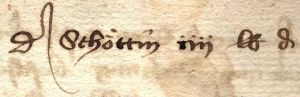 d Schöttin iiii lb d